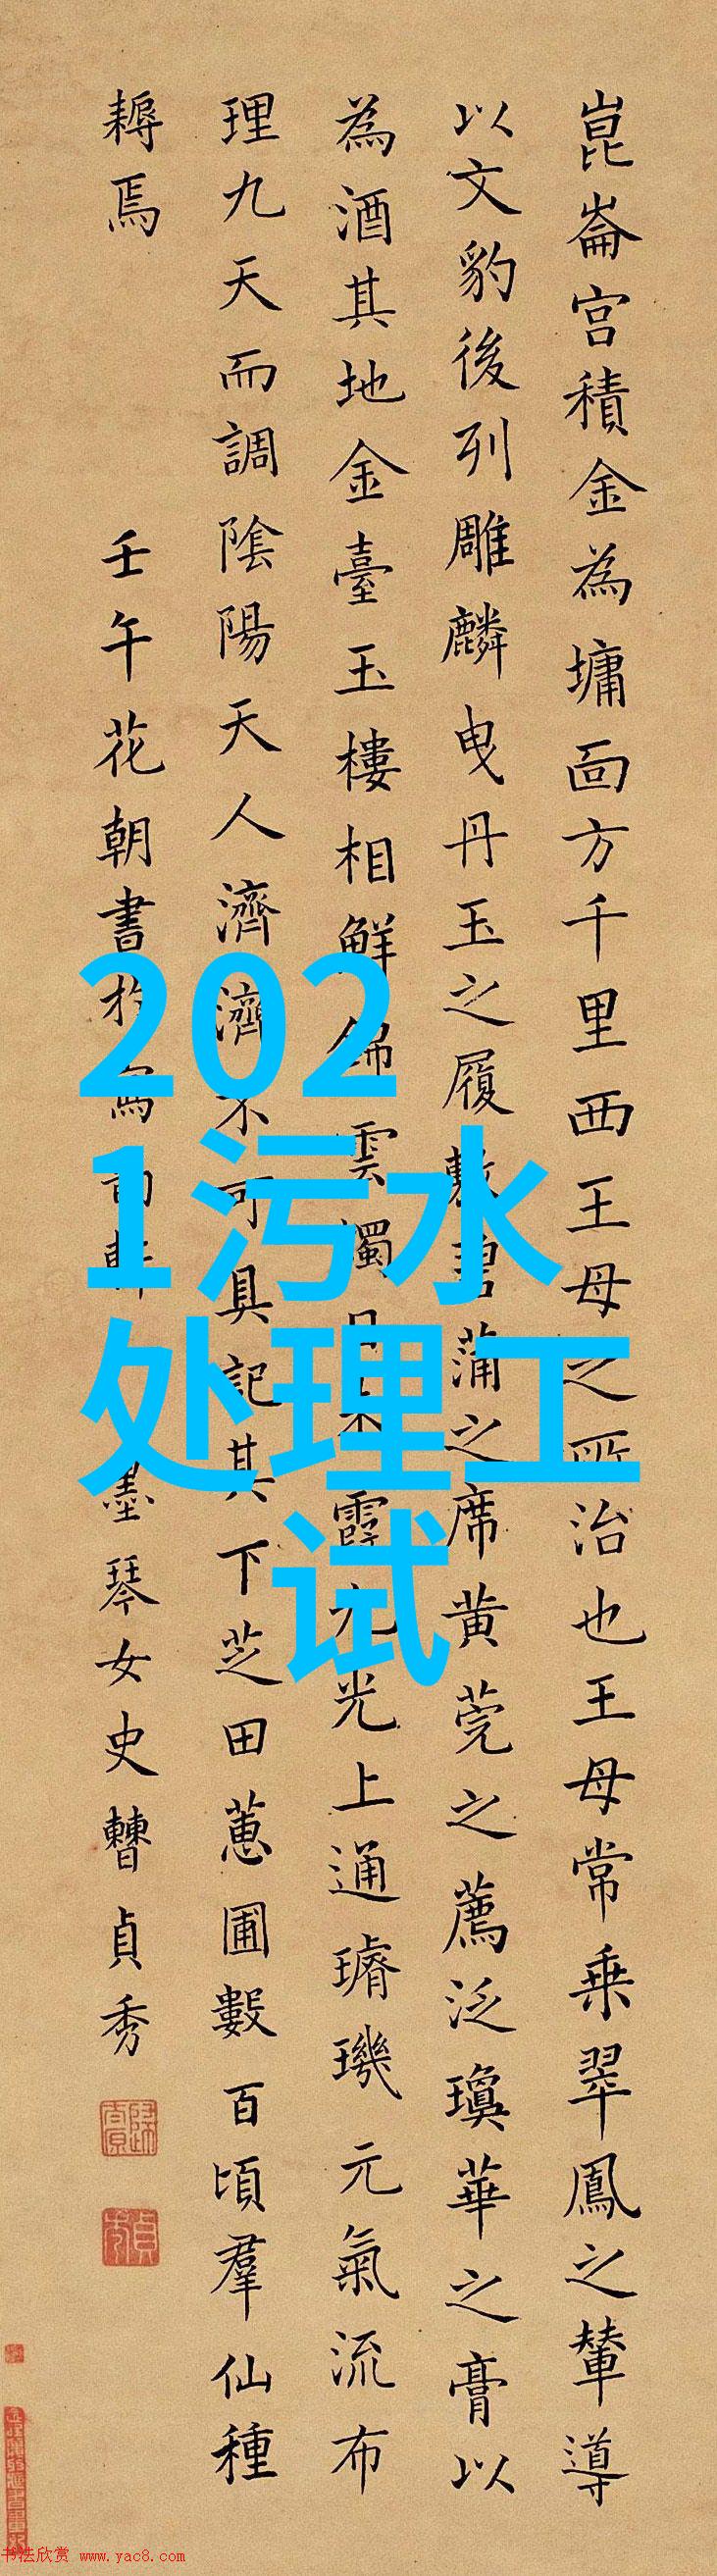 崑崙宮積金為墉面方千里西王母之所治也王母常乗翠鳳之輦導
以文豹後列雕麟曳丹玉之履敷碧蒲之席黄莞之薦泛瓊華之膏以
為酒其地金臺玉樓相鮮雲燭日朱霞九光上通璿璣元氣流布
理九天而調陰陽天人濟濟不可具記其下芝田蕙圃數百頃羣仙種
耨焉
壬午花朝書於寫韵軒 墨琴女史曹貞秀
202
1污水
处理工
试
书法欣赏 www.yac8.com